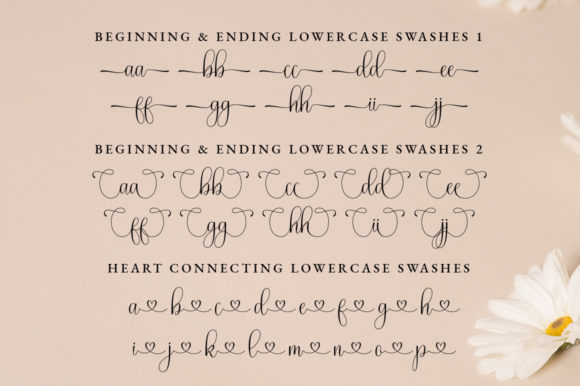 BEGINNING & ENDING LOWERCASE SWASHES 1
aa bb cc dd ee
ff gg hh ii jj
BEGINNING & ENDING LOWERCASE SWASHES 2
aa bb cc dd ee
ff gg hh ii jj
HEART CONNECTING LOWERCASE SWASHES
a b c d e f g h
i j k l m n o p